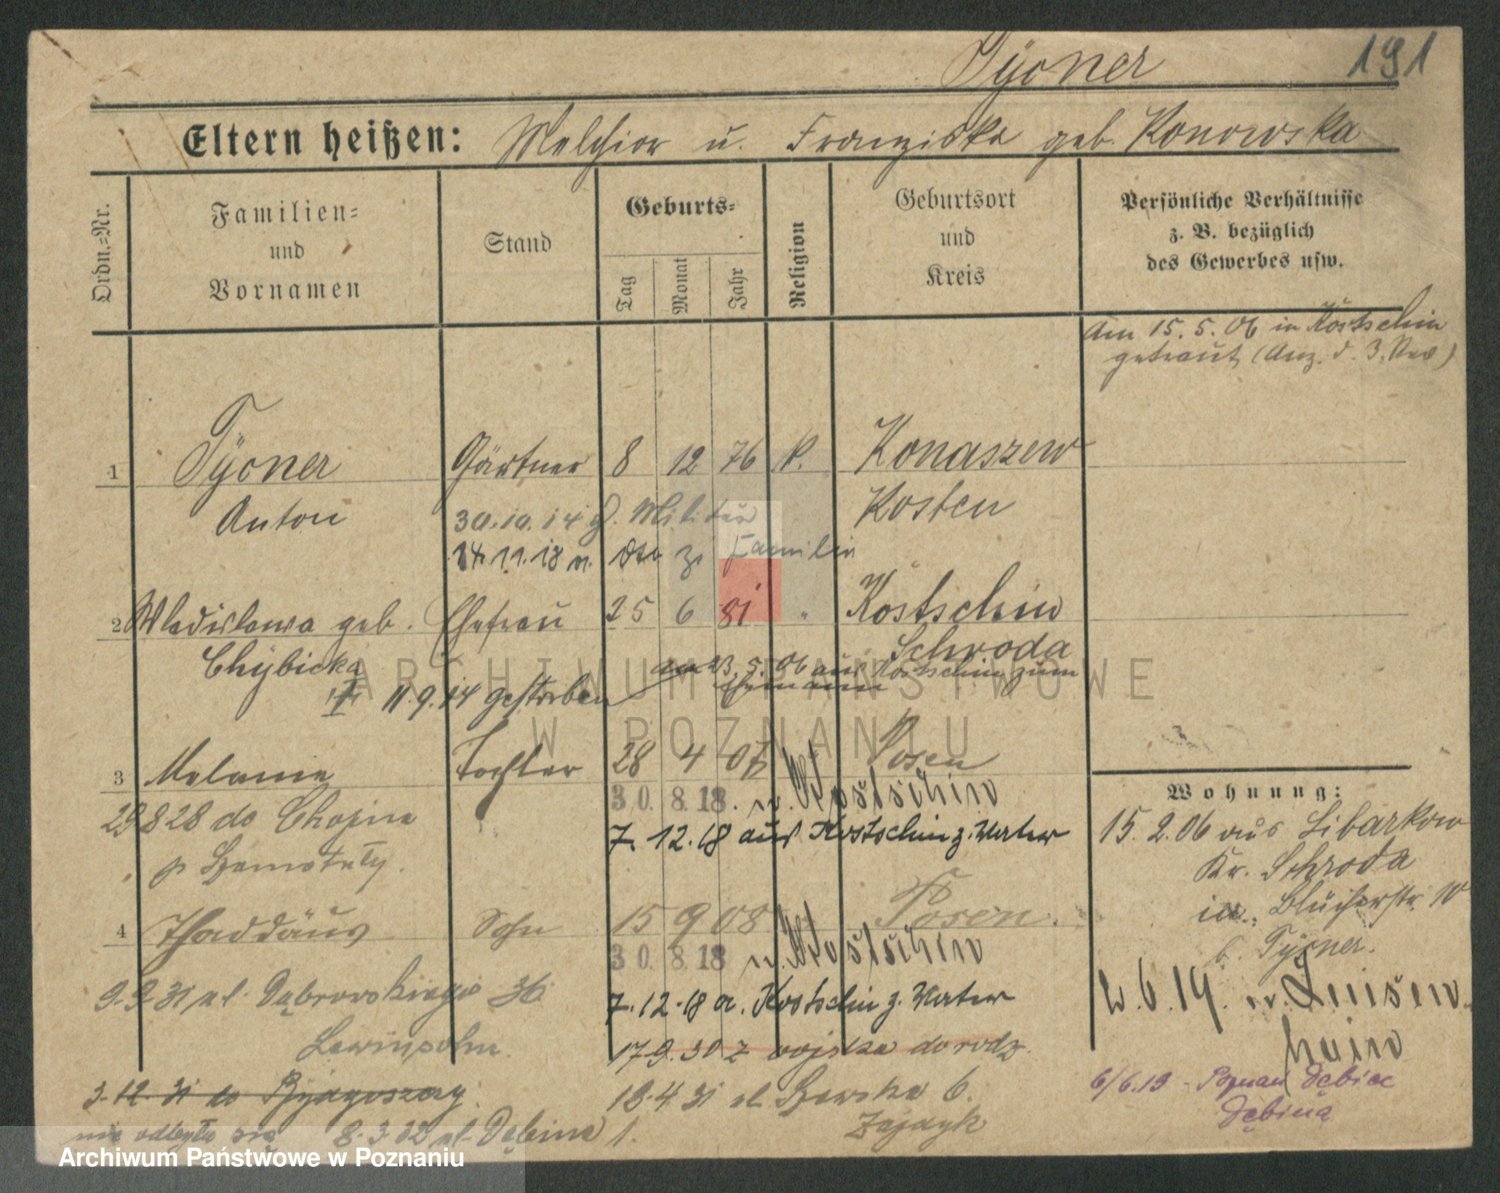 Tyoner
191
Eltern heißen: Melchior u. Franziska geb. Konowska
Ordn.-Nr.
Familien-
und
Vornamen
Stand
Geburts-
Tag
Monat
Jahr
Religion
Geburtsort
und
Kreis
Persönliche Verhältnisse
z. B. bezüglich
des Gewerbes usw.
Am 15. 5. 06 in Kostschin
getraut (Anz. d. 3. )
1 Tyoner Gärtner 8 12 76 k. Konaszew
Anton Kosten
30.10.14 z. Militär
14.11.18 v. dto z. Familie
2 Wladislawa geb. Ehefrau 25 6 81 " Kostschin
Chybicka Schroda
am 23. 5. 06 aus Kostschin zum
Ehemann
11.9.14 gestorben
3 Melanie Tochter 28 4 07 Posen
30. 8. 18. n. Kostschin
29 8 28 do Chojna
7. 12. 18 aus Kostschin z. Vater
p Szamotuły.
4 Thaddäus Sohn 15 9 08 Posen.
30. 8. 18 n. Kostschin
9.9.31 ul. Dąbrowskiego 36
7. 12. 18 a. Kostschin z. Vater
17 9. 30 z wojska do rodz.
3. 12. 31 do Bydgoszczy.
18.4.31 ul. Szewska 6.
Zajdzyk
nie odbyło się 8. 3. 32 ul. Dębina 1.
Wohnung:
15. 2. 06 aus Libarkow
Kr. Schroda
in Blücherstr. 10
b. Tyoner.
2. 6. 19. n. Luisen-
hain
6/6.19 - Poznan Dębiec
Dębina
ARCHIWUM PAŃSTWOWE
W POZNANIU
Archiwum Państwowe w Poznaniu